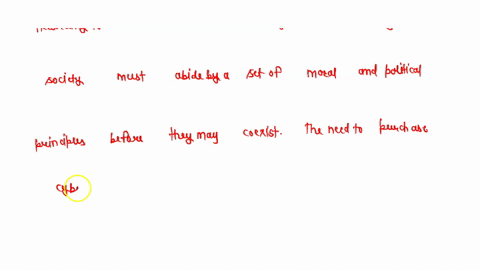 society must abide by a set of moral and political
principles before they may coexist. The need to purchase
cyb